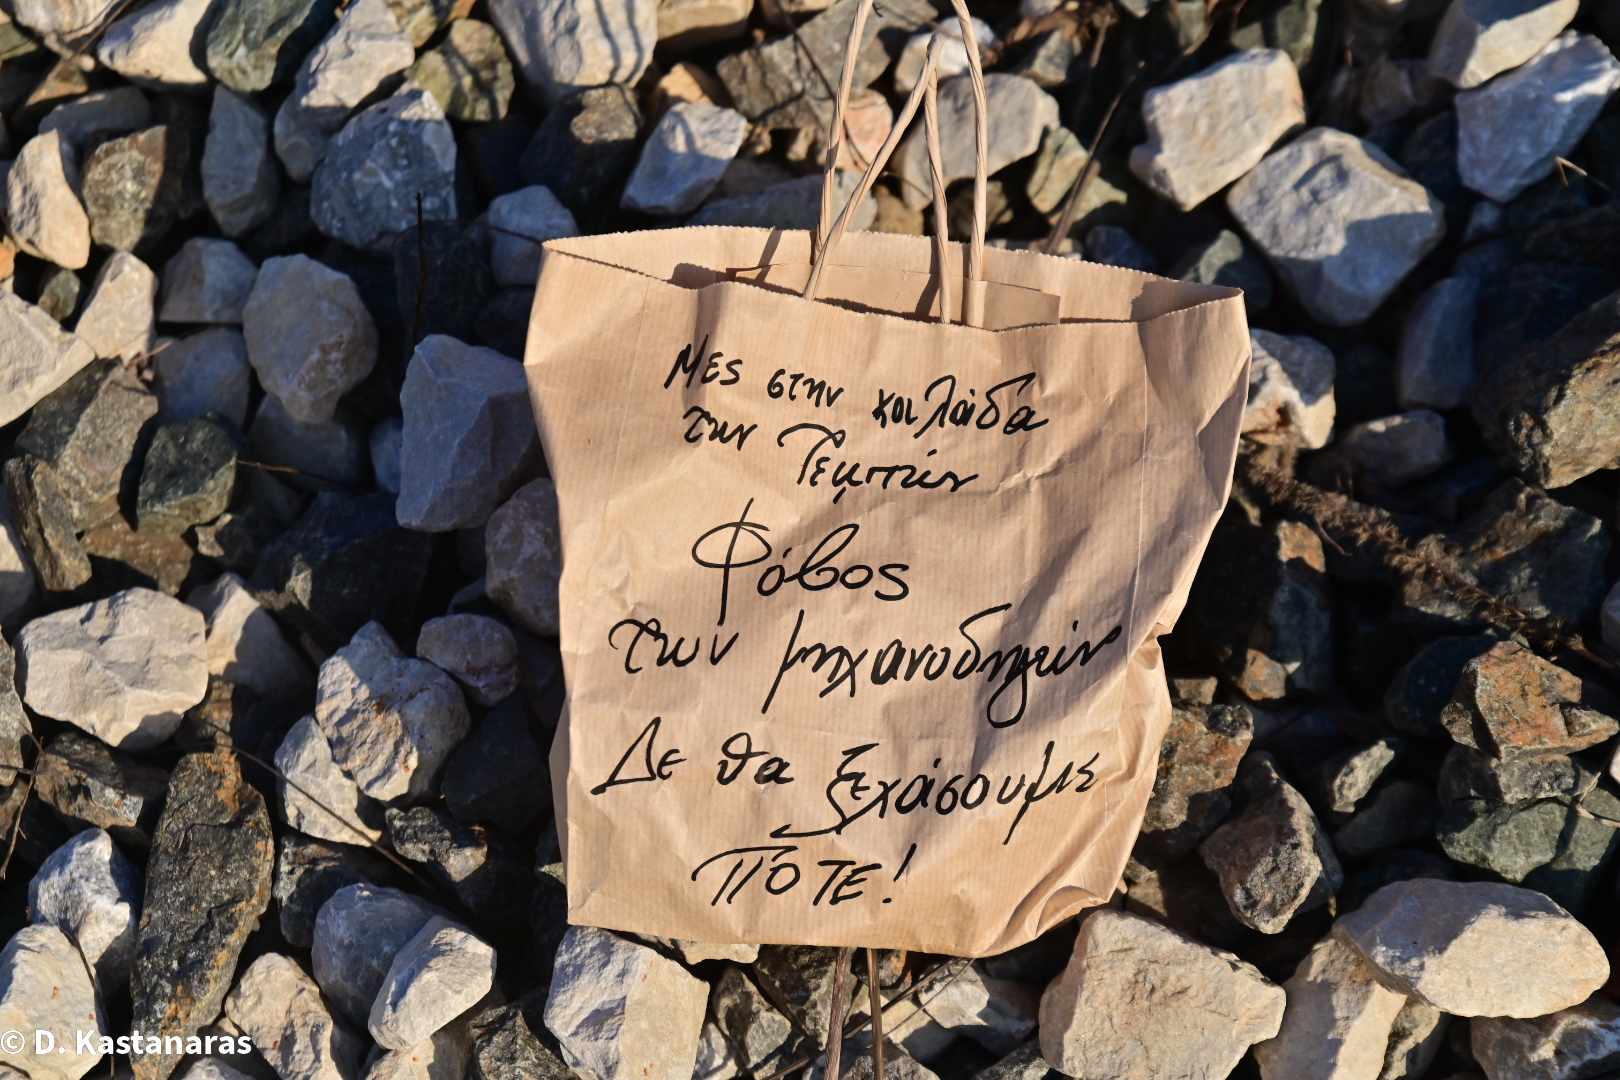 Μες στην κοιλάδα
των Τεμπών
Φόβος
των μηχανοδηγών
Δε θα ξεχάσουμε
ΠΌΤΕ!
© D. Kastanaras